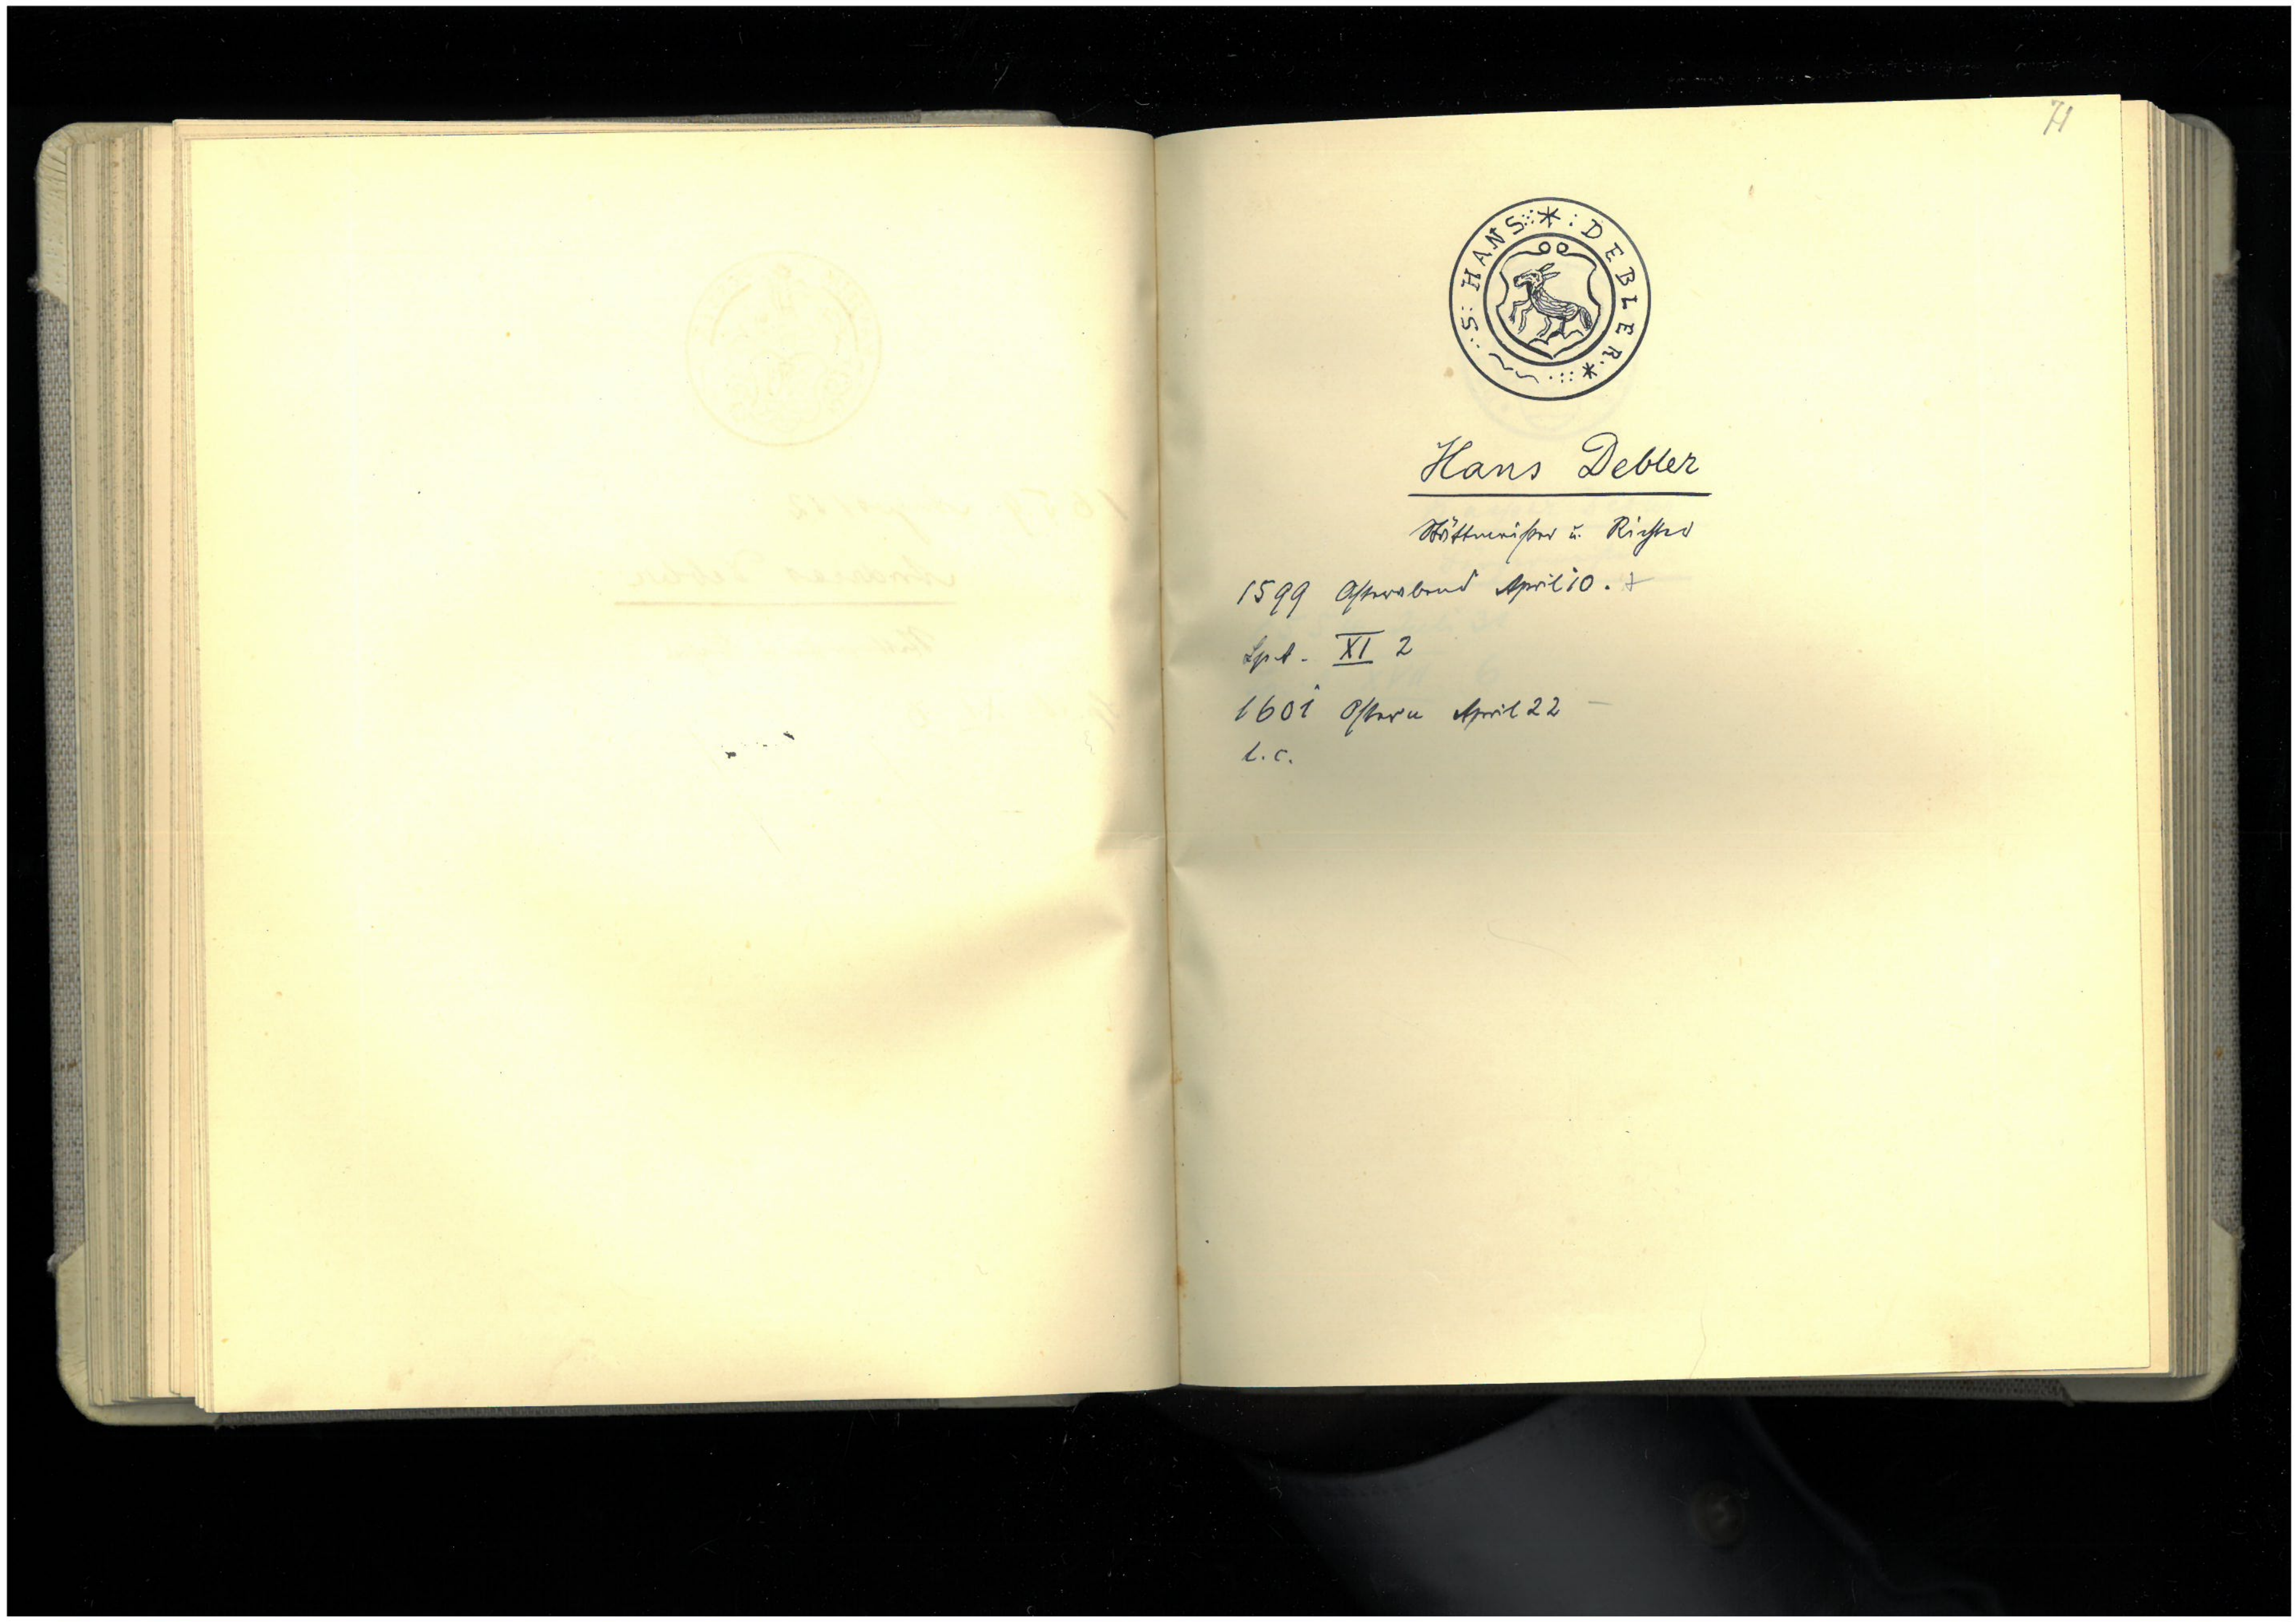 71
S: HANS DEBLER
Hans Debler
Stättmeister u. Richter
1599 Osterabend April 10.
Spt. XI 2
1601 Ostern April 22
l.c.